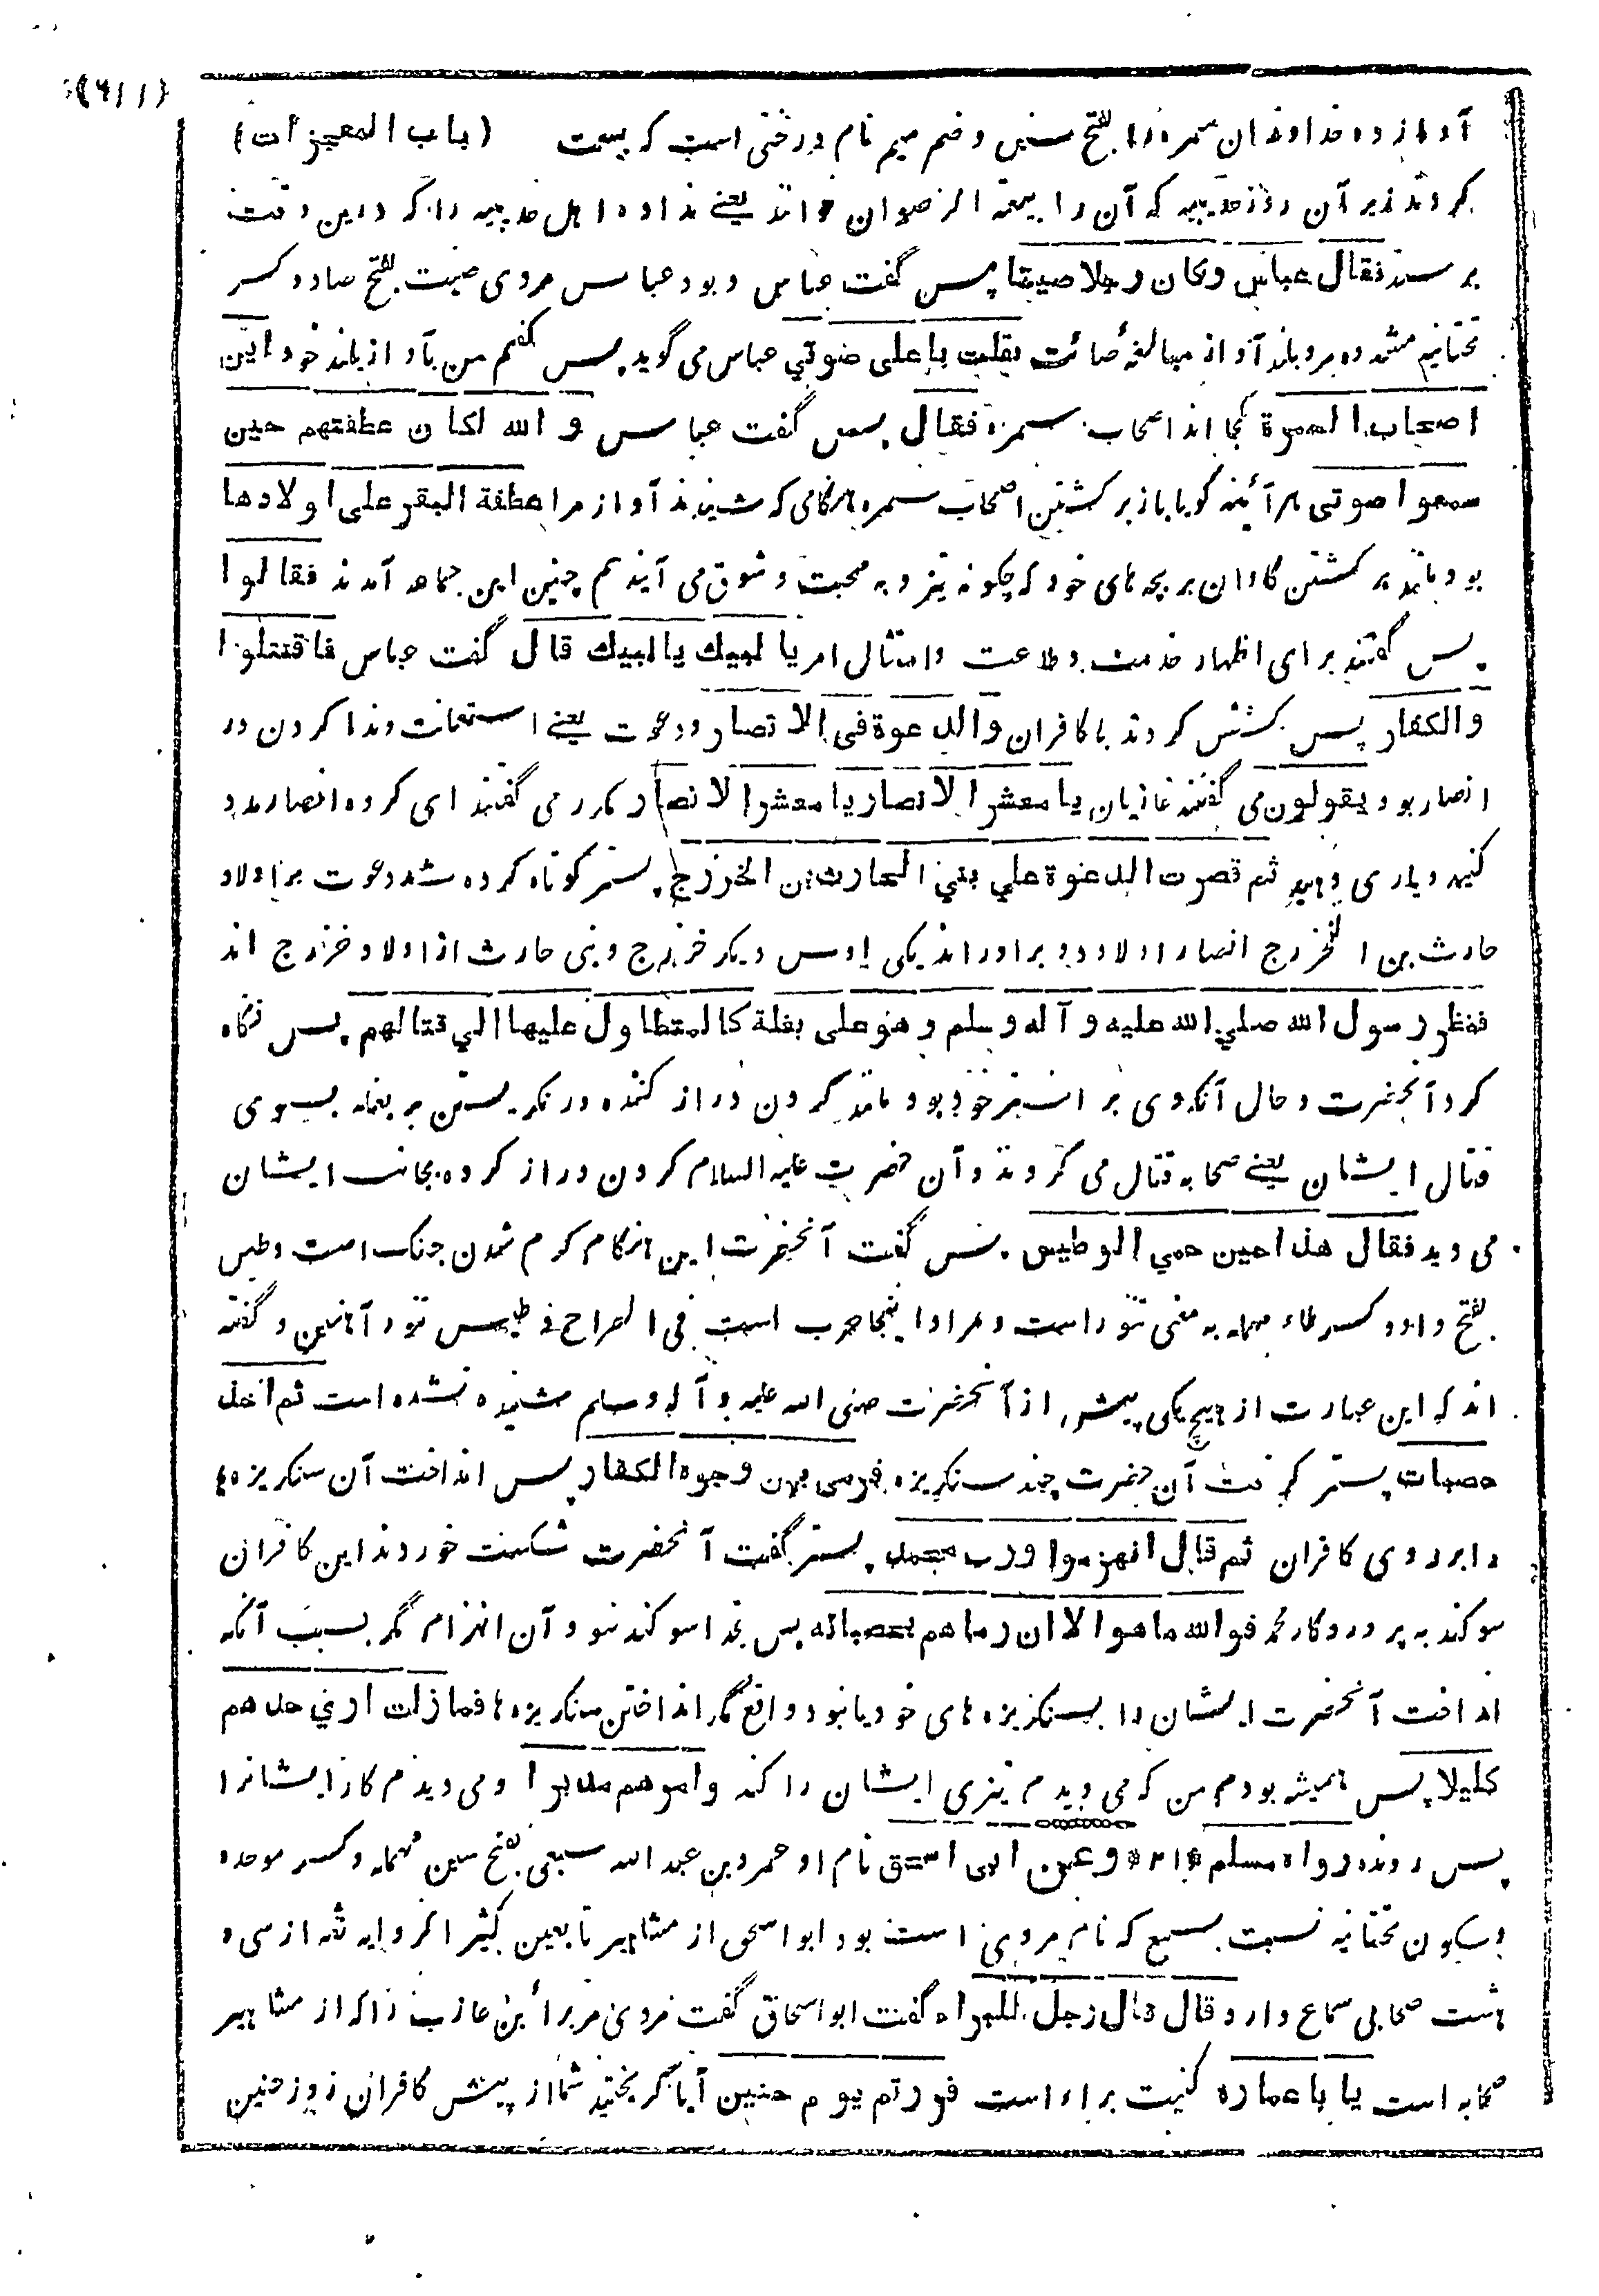 (۶۱۱)
(باب المعجزات)
آواز ده خداوندان سمره را بفتح سین و ضم میم نام درختی است که بیعت
کردند زیر آن روز حدیبیه که آن را بیعة الرضوان خوانند یعنے نداده اهل حدیبیه را که درین وقت
برسند فقال عباس وکان رجلا صیتا پس گفت عباس و بود عباس مردی صیت بفتح صاد و کسر
تحتانیه مشدده مرد بلند آواز مبالغهٔ صائت فقلت باعلی صوتي عباس می گوید پس گفتم من بآواز بلند خود این
اصحاب السمرة کجا اند اصحاب سمره فقال پس گفت عباس و الله لکان عطفتهم حین
سمعوا صوتی هر آئینه گویا باز برگشتن اصحاب سمره هنگامی که شنیدند آواز مرا عطفة البقر علی اولادها
بود مانند برگشتن گاوان بر بچه های خود که چگونه تیز و به محبت و شوق می آیند هم چنین این جماعه آمدند فقالوا
پس گفتند برای اظهار خدمت و طاعت و امتثال امر یا لبیك یا لبیك قال گفت عباس فاقتتلوا
والکفار پس کشش کردند با کافران والدعوة فی الانصار و دعوت یعنے استعانت و ندا کردن در
انصار بود یقولون می گفتند غازیان یا معشر الانصار یا معشر الانصار مکرر می گفتند ای گروه انصار مدد
کنید و یاری دهید ثم قصرت الدعوة علی بني الحارث بن الخزرج پستر کوتاه کرده شد دعوت بر اولاد
حارث بن الخزرج انصار اولاد دو برادر اند یکی اوس دیگر خزرج و بنی حارث از اولاد خزرج اند
فنظر رسول الله صلي الله علیه و آله وسلم وهو علی بغلة کالمتطاول علیها الي قتالهم پس نگاه
کرد آنحضرت و حال آنکه وی بر استر خود بود مانند گردن دراز کننده در نگریستن بر بغله بسوی
قتال ایشان یعنے صحابه قتال می کردند و آن حضرت علیه السلام گردن دراز کرده بجانب ایشان
می دید فقال هذا حین حمي الوطیس پس گفت آنحضرت این هنگام گرم شدن جنگ است وطیس
بفتح واو و کسر طاء مهمله به معنی تنور است و مراد اینجا حرب است فی الصراح وطیس تنور آهنین و گفته
اند که این عبارت از هیچ یکی پیشتر از آنحضرت صلی الله علیه و آله وسلم شنیده نشده است ثم اخذ
حصیات پستر گرفت آن حضرت چند سنگریزه فرمی بهن وجوه الکفار پس انداخت آن سنگریزه ها
را بر روی کافران ثم قال انهزموا ورب محمد پستر گفت آنحضرت شکست خوردند این کافران
سوگند به پروردگار محمد فوالله ماهو الا ان رماهم بحصیاته پس بخدا سوگند نبود آن انهزام مگر بسبب آنکه
انداخت آنحضرت ایشان را بسنگریزه های خود یا نبود واقع مگر انداختن سنگریزه ها فمازلت اري حدهم
کلیلا پس همیشه بودم من که می دیدم تیزی ایشان را کند وامرهم مدبرا و می دیدم کار ایشانرا
پس رونده رواه مسلم * ۲۱ * وعن ابی اسحق نام او عمرو بن عبد الله سبیعی بفتح سین مهمله و کسر موحده
و سکون تحتانیه نسبت بسبیع که نام مردی است بود ابو اسحق از مشاهیر تابعین کثیر الروایه ثقه از سی و
هشت صحابی سماع دارد قال قال رجل للبراء گفت ابو اسحاق گفت مردی مر براء بن عازب را که از مشاهیر
صحابه است یا باعماره کنیت براء است فررتم یوم حنین آیا گریختید شما از پیش کافران روز حنین